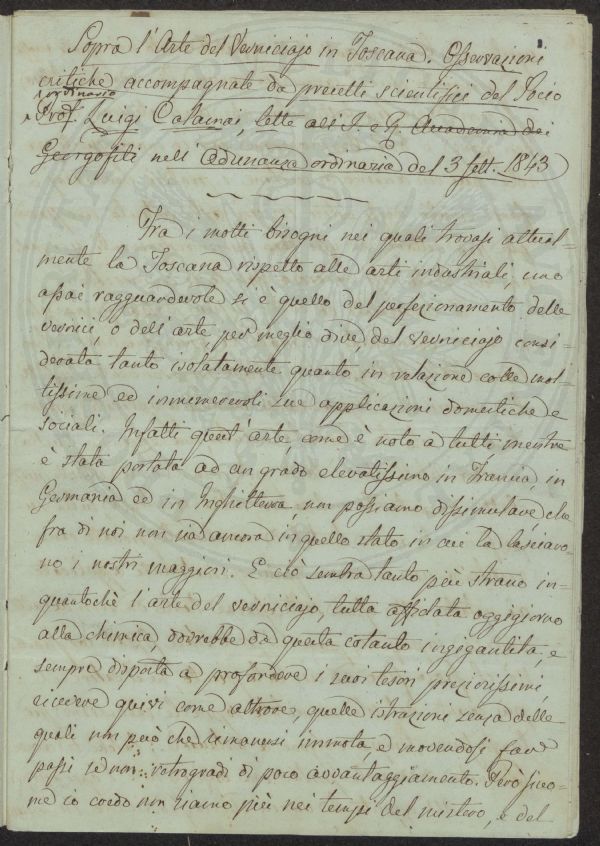 Sopra l'Arte del Verniciajo in Toscana. Osservazioni
critiche accompagnate da precetti scientifici del Socio
ordinario
Prof. Luigi Calamai, lette all'I. e R. Accademia dei
Georgofili nell'Adunanza ordinaria del 3 Sett. 1843
Tra i molti bisogni nei quali trovasi attual-
mente la Toscana rispetto alle arti industriali, uno
assai ragguardevole si è quello del perfezionamento delle
vernici, o dell'arte, per meglio dire, del verniciajo consi-
derata tanto isolatamente quanto in relazione colle mol-
tissime ed innumerevoli sue applicazioni domestiche e
sociali. Infatti quest'arte, come è noto a tutti mentre
è stata portata ad un grado elevatissimo in Francia, in
Germania ed in Inghilterra non possiamo dissimulare, che
fra di noi non sia ancora in quello stato in cui la lasciaro-
no i nostri maggiori. E ciò sembra tanto più strano in-
quantochè l'arte del verniciajo, tutta affidata oggigiorno
alla chimica, dovrebbe da questa cotanto ingigantita, e
sempre disposta a profondere i suoi tesori preziosissimi,
ricevere quivi come altrove, quelle istruzioni senza delle
quali non può che rimanersi immota, e movendosi fare
passi se non retrogradi di poco avvantaggiamento. Però sico-
me io credo non siamo più nei tempi del mistero, e del